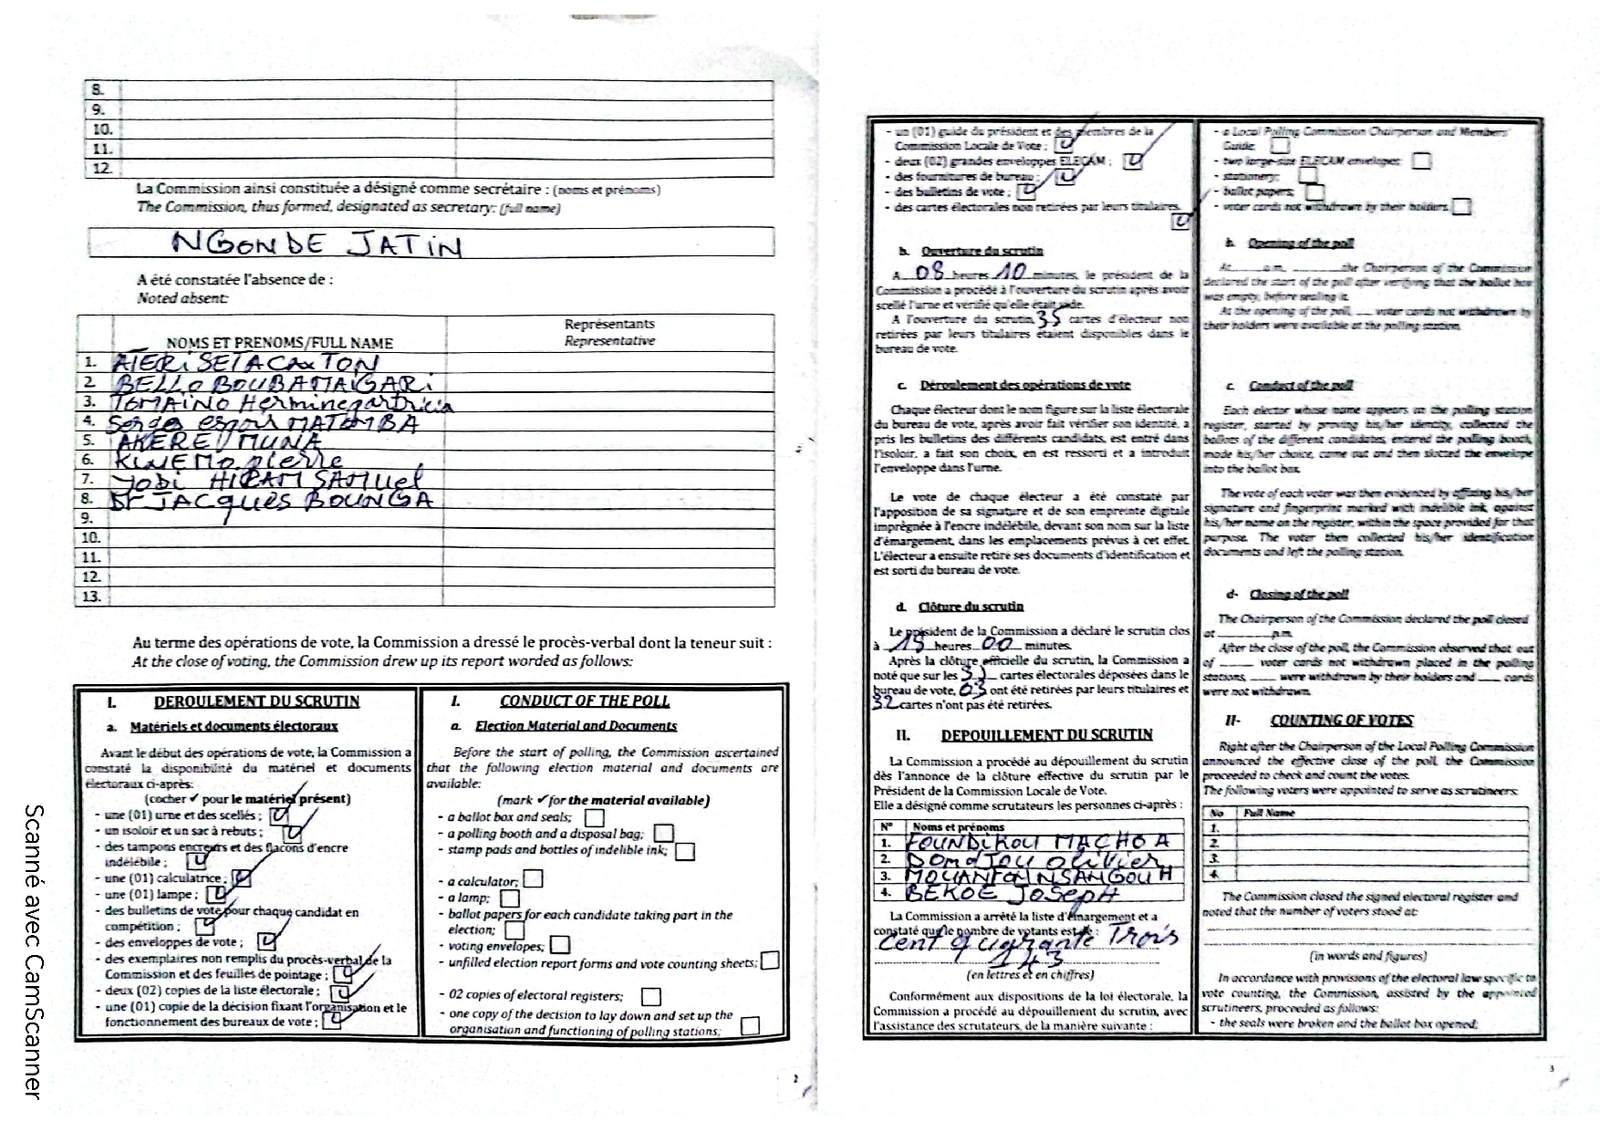 8.
9.
10.
11.
12.
La Commission ainsi constituée a désigné comme secrétaire : (noms et prénoms)
The Commission, thus formed, designated as secretary: (full name)
NGONDE JATIN
A été constatée l'absence de :
Noted absent:
NOMS ET PRENOMS/FULL NAME
Représentants
Representative
1. ATERI SETACAXTON
2. BELLO BOUBA MAIGARI
3. TOMAINO Hermine
4. Serge espoir MATOMBA
5. AKERE MUNA
6. KWEMO pierre
7. YOBI HIRAM SAMUEL
8. Dr JACQUES BOUNGA
9.
10.
11.
12.
13.
Au terme des opérations de vote, la Commission a dressé le procès-verbal dont la teneur suit :
At the close of voting, the Commission drew up its report worded as follows:
I. DEROULEMENT DU SCRUTIN
a. Matériels et documents électoraux
Avant le début des opérations de vote, la Commission a
constaté la disponibilité du matériel et documents
électoraux ci-après:
(cocher ✓ pour le matériel présent)
- une (01) urne et des scellés ;
- un isoloir et un sac à rebuts ;
- des tampons encreurs et des flacons d'encre
indélébile ;
- une (01) calculatrice ;
- une (01) lampe ;
- des bulletins de vote pour chaque candidat en
compétition ;
- des enveloppes de vote ;
- des exemplaires non remplis du procès-verbal de la
Commission et des feuilles de pointage ;
- deux (02) copies de la liste électorale ;
- une (01) copie de la décision fixant l'organisation et le
fonctionnement des bureaux de vote ;
I. CONDUCT OF THE POLL
a. Election Material and Documents
Before the start of polling, the Commission ascertained
that the following election material and documents are
available:
(mark ✓ for the material available)
- a ballot box and seals;
- a polling booth and a disposal bag;
- stamp pads and bottles of indelible ink;
- a calculator;
- a lamp;
- ballot papers for each candidate taking part in the
election;
- voting envelopes;
- unfilled election report forms and vote counting sheets;
- 02 copies of electoral registers;
- one copy of the decision to lay down and set up the
organisation and functioning of polling stations;
2
Scanné avec CamScanner
- un (01) guide du président et des membres de la
Commission Locale de Vote ;
- deux (02) grandes enveloppes ELECAM ;
- des fournitures de bureau ;
- des bulletins de vote ;
- des cartes électorales non retirées par leurs titulaires.
b. Ouverture du scrutin
A 08 heures 10 minutes, le président de la
Commission a procédé à l'ouverture du scrutin après avoir
scellé l'urne et vérifié qu'elle était vide.
A l'ouverture du scrutin, 35 cartes d'électeur non
retirées par leurs titulaires étaient disponibles dans le
bureau de vote.
c. Déroulement des opérations de vote
Chaque électeur dont le nom figure sur la liste électorale
du bureau de vote, après avoir fait vérifier son identité, a
pris les bulletins des différents candidats, est entré dans
l'isoloir, a fait son choix, en est ressorti et a introduit
l'enveloppe dans l'urne.
Le vote de chaque électeur a été constaté par
l'apposition de sa signature et de son empreinte digitale
imprégnée à l'encre indélébile, devant son nom sur la liste
d'émargement, dans les emplacements prévus à cet effet.
L'électeur a ensuite retiré ses documents d'identification et
est sorti du bureau de vote.
d. Clôture du scrutin
Le président de la Commission a déclaré le scrutin clos
à heures 00 minutes.
Après la clôture officielle du scrutin, la Commission a
noté que sur les cartes électorales déposées dans le
bureau de vote, 03 ont été retirées par leurs titulaires et
32 cartes n'ont pas été retirées.
II. DEPOUILLEMENT DU SCRUTIN
La Commission a procédé au dépouillement du scrutin
dès l'annonce de la clôture effective du scrutin par le
Président de la Commission Locale de Vote.
Elle a désigné comme scrutateurs les personnes ci-après :
N° Noms et prénoms
1. FOUNDIKOU MACHOA
2. DOMDJOU Olivier
3. MOUANFON NSANGOUH
4. BEKOE JOSEPH
La Commission a arrêté la liste d'émargement et a
constaté que le nombre de votants est de :
cent quarante Trois
143
(en lettres et en chiffres)
Conformément aux dispositions de la loi électorale, la
Commission a procédé au dépouillement du scrutin, avec
l'assistance des scrutateurs, de la manière suivante :
- a Local Polling Commission Chairperson and Members'
Guide;
- two large-size ELECAM envelopes;
- stationery;
- ballot papers;
- voter cards not withdrawn by their holders.
b. Opening of the poll
At a.m, the Chairperson of the Commission
declared the start of the poll after verifying that the ballot box
was empty, before sealing it.
At the opening of the poll, voter cards not withdrawn by
their holders were available at the polling station.
c. Conduct of the poll
Each elector whose name appears on the polling station
register, started by proving his/her identity, collected the
ballots of the different candidates, entered the polling booth,
made his/her choice, came out and then slotted the envelope
into the ballot box.
The vote of each voter was then evidenced by affixing his/her
signature and fingerprint marked with indelible ink, against
his/her name on the register, within the space provided for that
purpose. The voter then collected his/her identification
documents and left the polling station.
d- Closing of the poll
The Chairperson of the Commission declared the poll closed
at p.m.
After the close of the poll, the Commission observed that out
of voter cards not withdrawn placed in the polling
stations, were withdrawn by their holders and cards
were not withdrawn.
II- COUNTING OF VOTES
Right after the Chairperson of the Local Polling Commission
announced the effective close of the poll, the Commission
proceeded to check and count the votes.
The following voters were appointed to serve as scrutineers:
No Full Name
1.
2.
3.
4.
The Commission closed the signed electoral register and
noted that the number of voters stood at:
(in words and figures)
In accordance with provisions of the electoral law specific to
vote counting, the Commission, assisted by the appointed
scrutineers, proceeded as follows:
- the seals were broken and the ballot box opened;
3